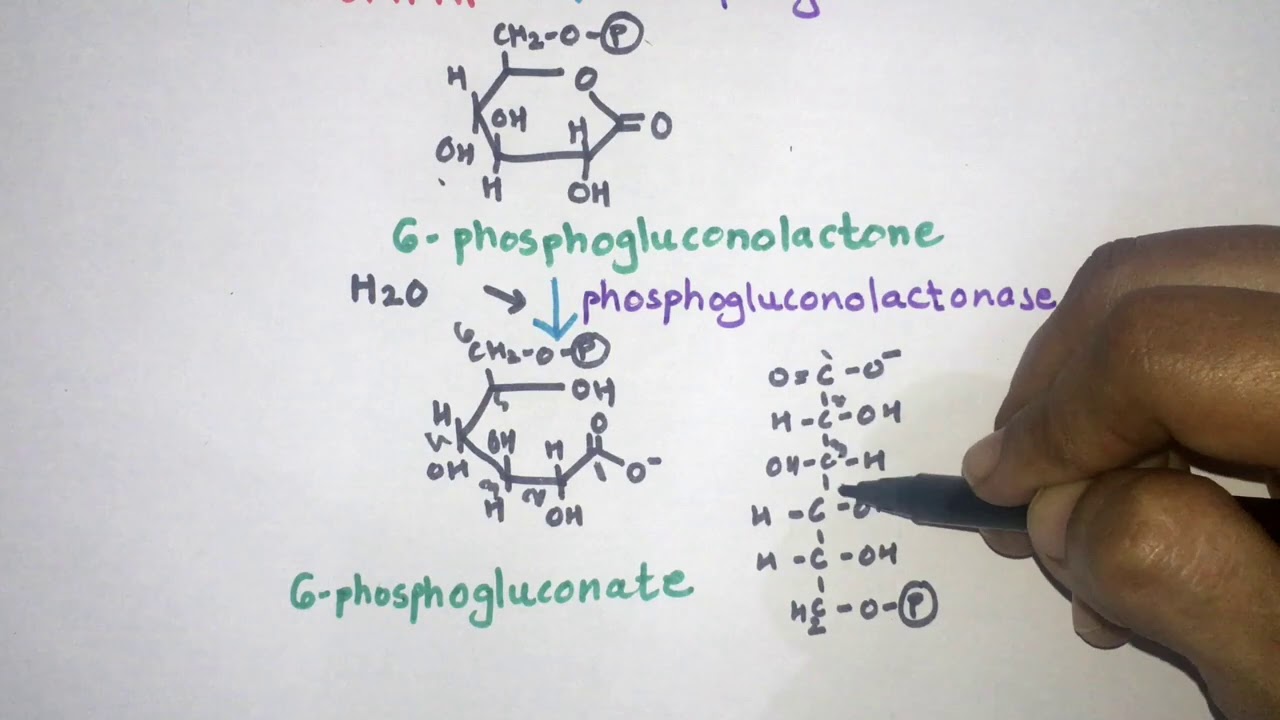 CH2-O-P
H
O
OH
H
=O
OH
H
OH
6-phosphogluconolactone
H2O
phosphogluconolactonase
6
CH2-O-P
5
OH
H
OH
H
O
OH
O-
3
2
H
OH
6-phosphogluconate
O=C-O-
H-C-OH
OH-C-H
H-C-O
H-C-OH
H2C-O-P